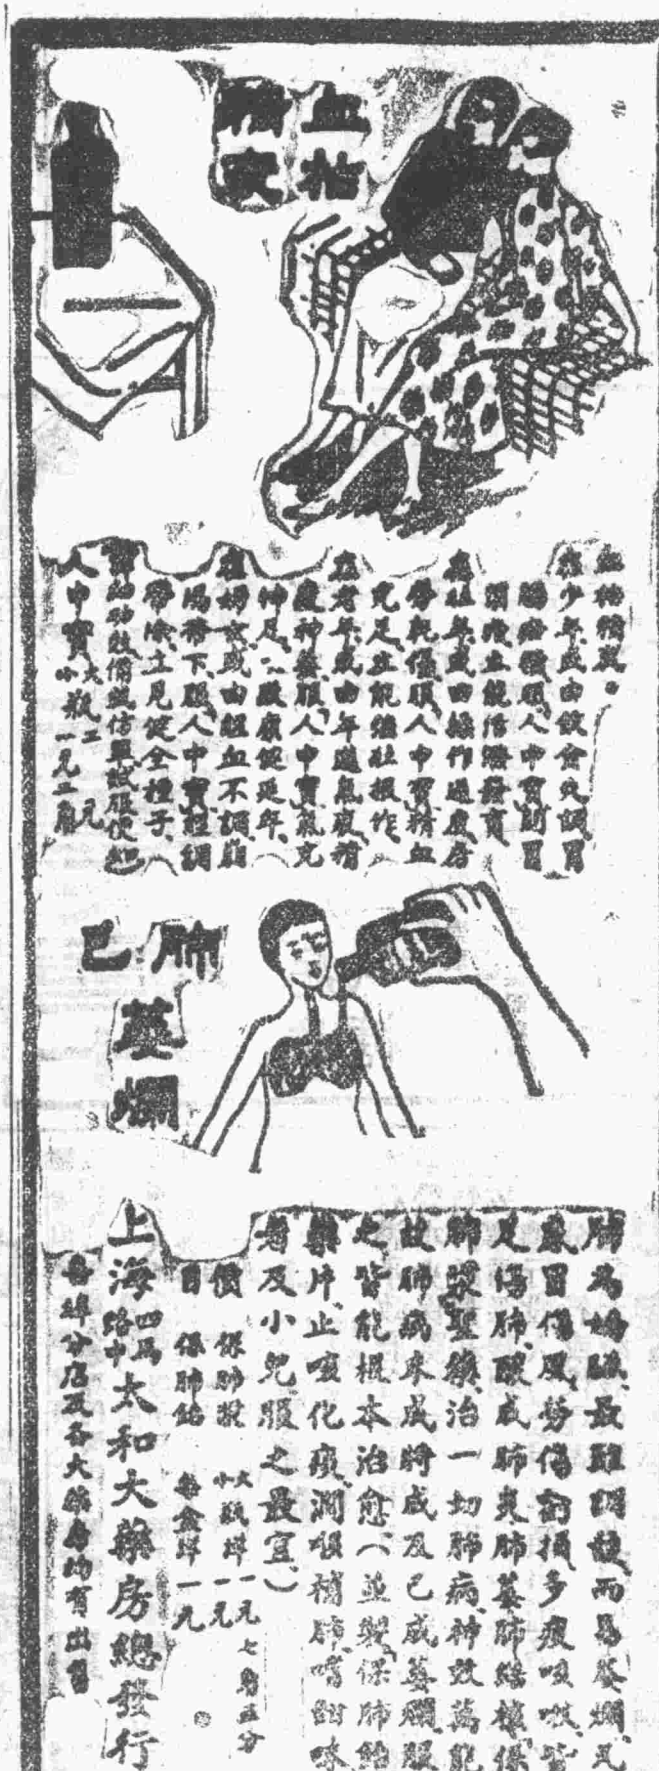 血枯
精衰
血枯精衰。
在少年或由飲食失調胃
腸
開胃並能活潑發育
在壯年或因操作過度
勞乾傷服人中寶精血
充足並能強壯振作、
在老年或由年邁氣衰精
虛神萎服人中寶氣充
神足、康健延年、
在婦女或由經血不調
服人中寶經調
帶除立見健全種子、
功效備載仿單試服便知
人中寶 大瓶二元
小瓶一元二角
肺已
萎爛
肺為嬌臟、最難調護而易萎爛、凡
感冒傷風勞傷虧損多痰咳嗽、皆
足傷肺、釀成肺炎肺萎肺癆、惟保
肺漿聖藥、治一切肺病、神效萬能
故肺病未成將成及已成萎爛、服
之皆能根本治愈、(並製保肺飴
藥片、止咳化痰、潤喉補肺、味
者及小兒服之最宜、)
價目
保肺漿 大瓶 一元七角五分
小瓶洋一元
保肺飴 每盒洋一元
上海四馬路中太和大藥房總發行
各埠分店及各大藥房均有出售